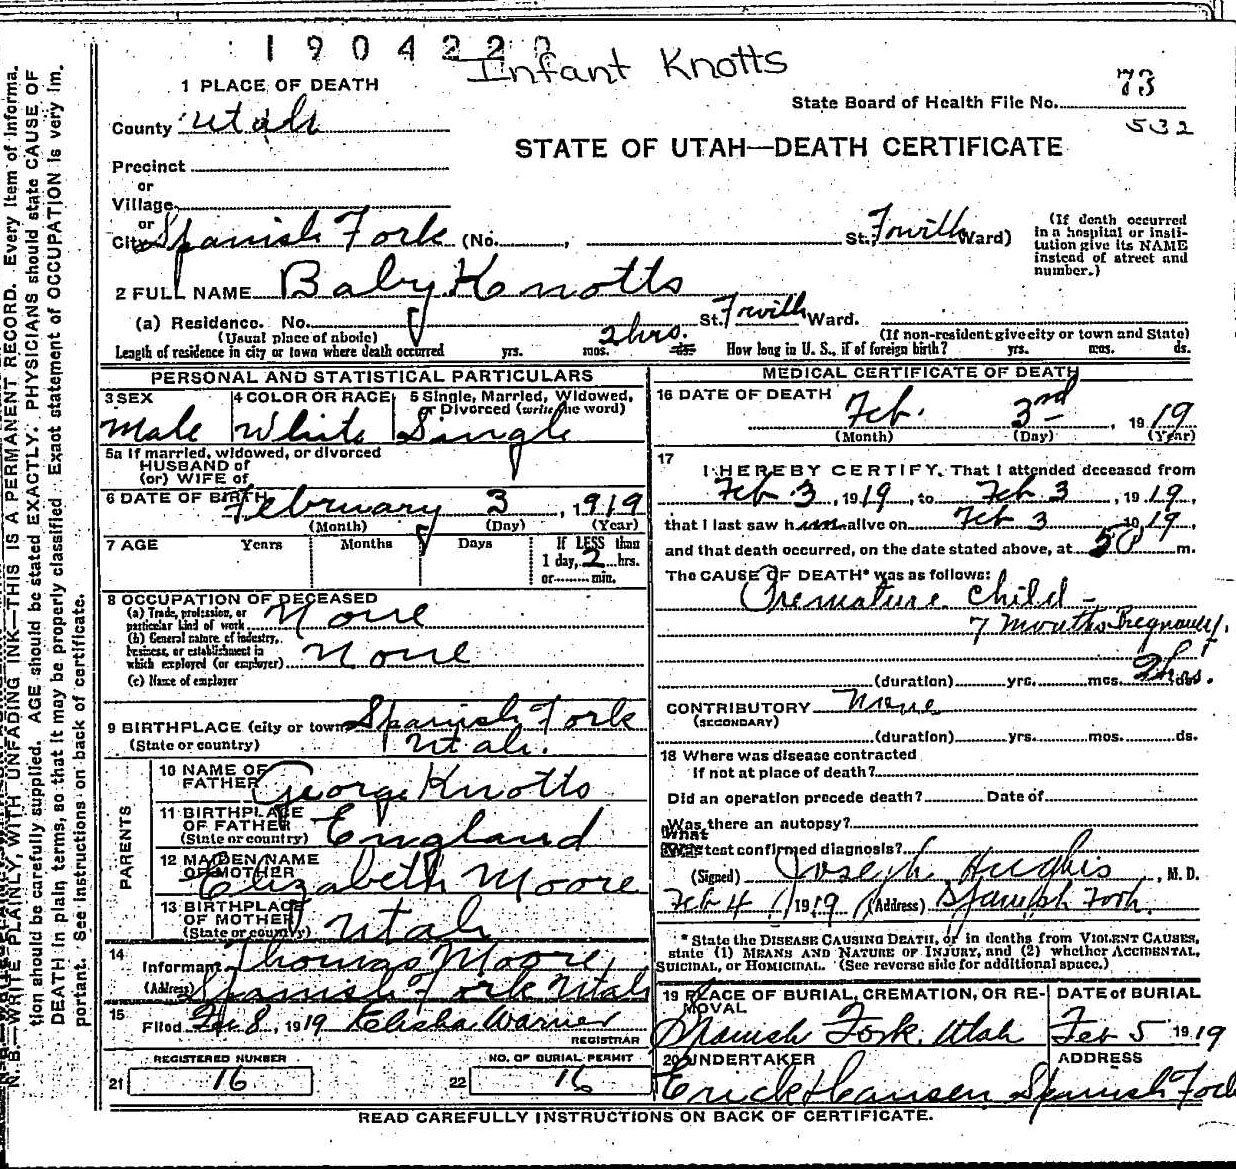 1904220
Infant Knotts
1 PLACE OF DEATH
State Board of Health File No. 73
532
County Utah
STATE OF UTAH—DEATH CERTIFICATE
Precinct
or
Village
or
City Spanish Fork (No. , St. Fourth Ward)
(If death occurred in a hospital or insti-
tution give its NAME
instead of street and
number.)
2 FULL NAME Baby Knotts
(a) Residence. No. St. Fourth Ward.
(Usual place of abode) (If non-resident give city or town and State)
Length of residence in city or town where death occurred yrs. mos. 2 hrs. ds. How long in U. S., if of foreign birth? yrs. mos. ds.
PERSONAL AND STATISTICAL PARTICULARS
3 SEX
Male
4 COLOR OR RACE
White
5 Single, Married, Widowed,
or Divorced (write the word)
Single
5a If married, widowed, or divorced
HUSBAND of
(or) WIFE of
6 DATE OF BIRTH February 3, 1919
(Month) (Day) (Year)
7 AGE Years Months Days If LESS than
1 day, 2 hrs.
or min.
8 OCCUPATION OF DECEASED
(a) Trade, profession, or
particular kind of work None
(b) General nature of industry,
business, or establishment in
which employed (or employer) None
(c) Name of employer
9 BIRTHPLACE (city or town) Spanish Fork
(State or country) Utah.
PARENTS
10 NAME OF
FATHER George Knotts
11 BIRTHPLACE
OF FATHER England
(State or country)
12 MAIDEN NAME
OF MOTHER Elizabeth Moore
13 BIRTHPLACE
OF MOTHER Utah
(State or country)
14
Informant Thomas Moore,
(Address) Spanish Fork Utah
15
Filed Feb 8, 1919 Elisha Warner
REGISTRAR
REGISTERED NUMBER
21 16
NO. OF BURIAL PERMIT
22 16
MEDICAL CERTIFICATE OF DEATH
16 DATE OF DEATH
Feb. 3rd, 1919
(Month) (Day) (Year)
17
I HEREBY CERTIFY, That I attended deceased from
Feb 3, 1919, to Feb 3, 1919,
that I last saw him alive on Feb 3 1919,
and that death occurred, on the date stated above, at m.
The CAUSE OF DEATH* was as follows:
Premature Child -
7 Months Pregnancy.
(duration) yrs. mos. 2 hrs. ds.
CONTRIBUTORY None
(SECONDARY)
(duration) yrs. mos. ds.
18 Where was disease contracted
If not at place of death?
Did an operation precede death? Date of
Was there an autopsy?
What test confirmed diagnosis?
(Signed) Joseph Hughes, M. D.
Feb 4, 1919 (Address) Spanish Fork.
*State the DISEASE CAUSING DEATH, or in deaths from VIOLENT CAUSES,
state (1) MEANS AND NATURE OF INJURY, and (2) whether ACCIDENTAL,
SUICIDAL, or HOMICIDAL. (See reverse side for additional space.)
19 PLACE OF BURIAL, CREMATION, OR RE-
MOVAL
Spanish Fork, Utah
DATE OF BURIAL
Feb 5 1919
20 UNDERTAKER
Erick Hansen
ADDRESS
Spanish Fork
READ CAREFULLY INSTRUCTIONS ON BACK OF CERTIFICATE.
N. B.—WRITE PLAINLY, WITH UNFADING INK—THIS IS A PERMANENT RECORD. Every item of informa-
tion should be carefully supplied. AGE should be stated EXACTLY. PHYSICIANS should state CAUSE OF
DEATH in plain terms, so that it may be properly classified. Exact statement of OCCUPATION is very im-
portant. See instructions on back of certificate.